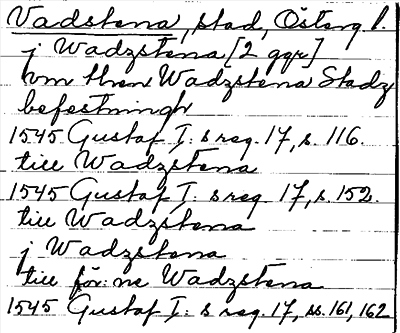 Vadstena, stad, Österg. l.
j Wadzstena [2 ggr]
om then Wadzstena Stadz
befestningh
1545 Gustaf I: s reg. 17, s. 116.
till Wadzstena
1545 Gustaf I: s reg. 17, s. 152.
till Wadzstena
j Wadzstena
till för:ne Wadzstena
1545 Gustaf I: s reg. 17, ss. 161, 162